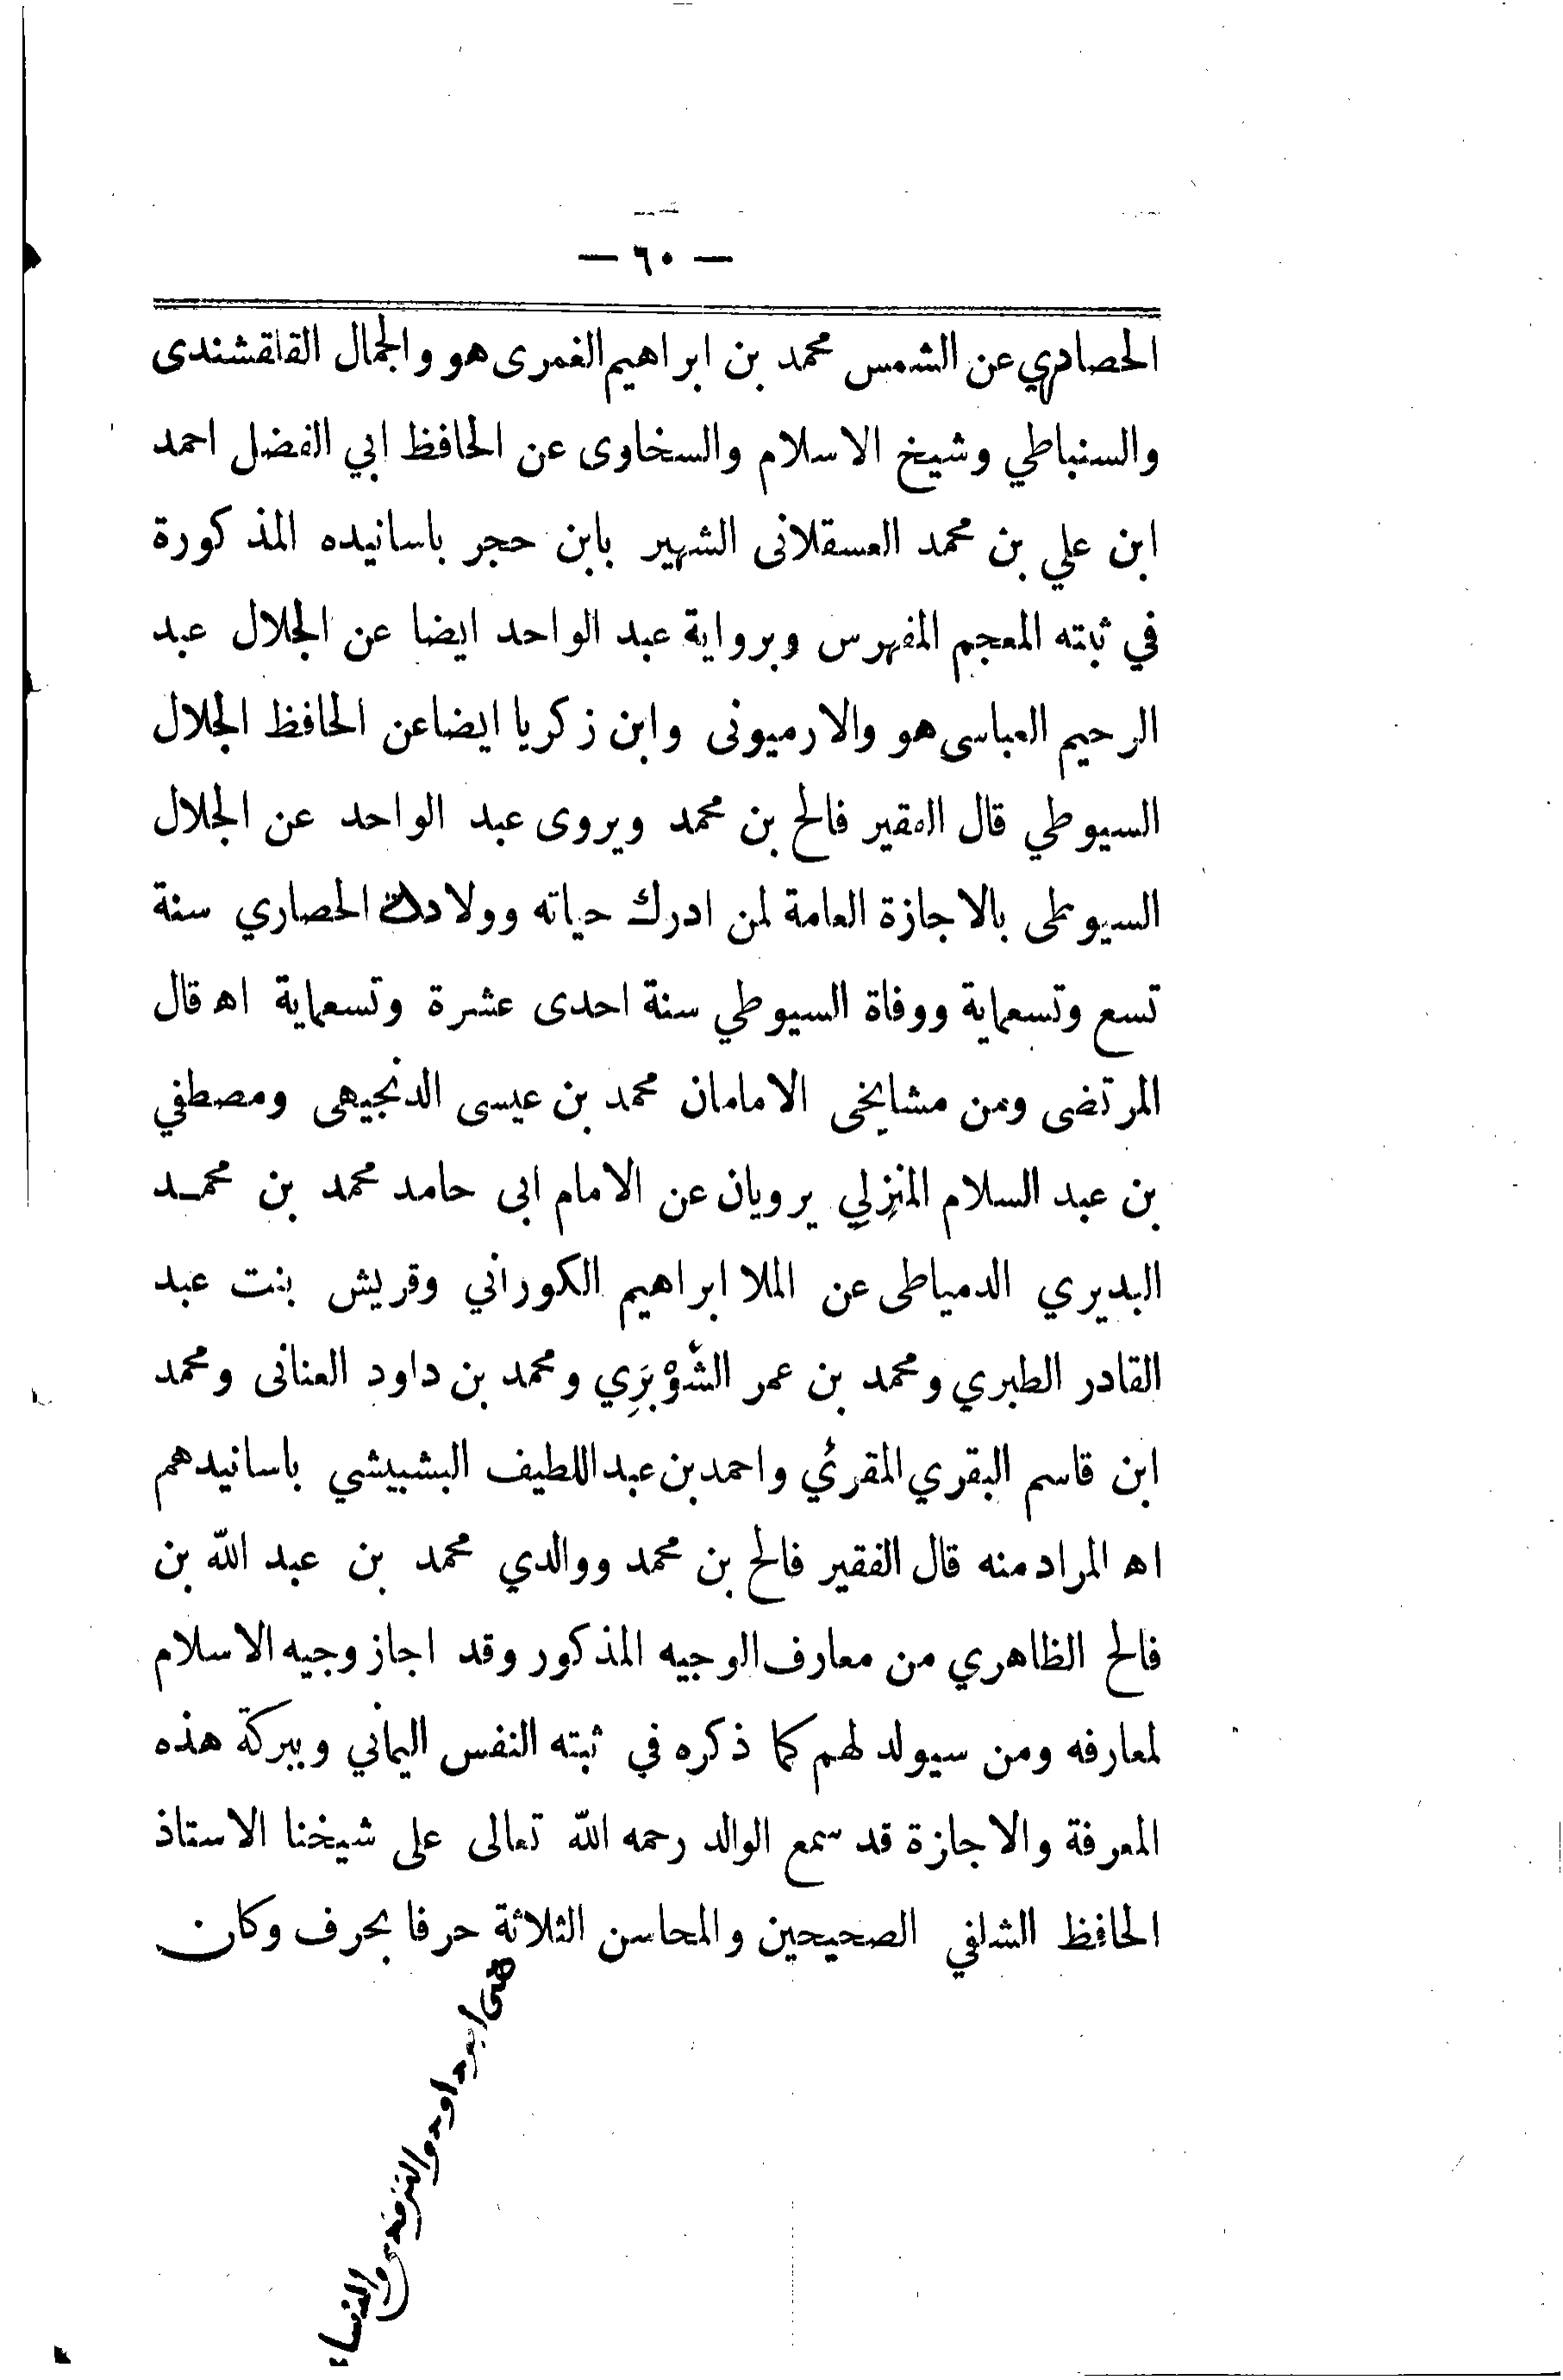 — ٦٠ —
الحصاري عن الشمس محمد بن ابراهيم الغمرى هو والجمال القلقشندى
والسنباطي وشيخ الاسلام والسخاوى عن الحافظ ابي الفضل احمد
ابن علي بن محمد العسقلانى الشهير بابن حجر باسانيده المذكورة
في ثبته المعجم المفهرس وبرواية عبد الواحد ايضا عن الجلال عبد
الرحيم العباسى هو والارميونى وابن زكريا ايضا عن الحافظ الجلال
السيوطي قال الفقير فالح بن محمد ويروى عبد الواحد عن الجلال
السيوطى بالاجازة العامة لمن ادرك حياته وولادة الحصاري سنة
تسع وتسعماية ووفاة السيوطي سنة احدى عشرة وتسعماية اه قال
المرتضى ومن مشايخى الامامان محمد بن عيسى الدنجيهى ومصطفي
بن عبد السلام المنزِلي يرويان عن الامام ابى حامد محمد بن محمـد
البديري الدمياطى عن الملا ابراهيم الكوراني وقريش بنت عبد
القادر الطبري ومحمد بن عمر الشَّوْبَرِي ومحمد بن داود العنانى ومحمد
ابن قاسم البقري المقرئي واحمد بن عبد اللطيف البشبيشي باسانيدهم
اه المراد منه قال الفقير فالح بن محمد ووالدي محمد بن عبد الله بن
فالح الظاهري من معارف الوجيه المذكور وقد اجاز وجيه الاسلام
لمعارفه ومن سيولد لهم كما ذكره في ثبته النفس اليماني وببركة هذه
المعرفة والاجازة قد سمع الوالد رحمه الله تعالى على شيخنا الاستاذ
الحافظ الشلفي الصحيحين والمحاسن الثلاثة حرفا بحرف وكان
هى ابو داود والترمذى والنسا